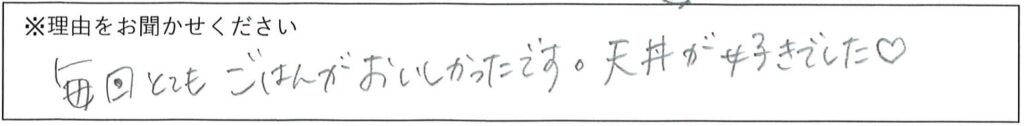 ※理由をお聞かせください
毎回とてもごはんがおいしかったです。天丼が好きでした♡